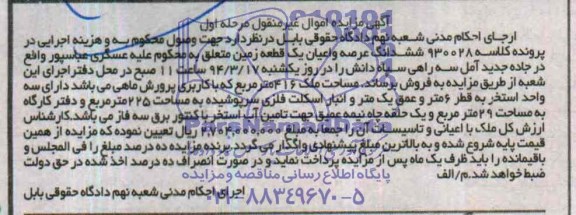 آگهی مزایده اموال غیرمنقول مرحله اول
اجرای احکام مدنی شعبه نهم دادگاه حقوقی بابل در نظر دارد جهت وصول محکوم به و هزینه اجرایی در
پرونده کلاسه ۹۳۰۰۲۸ ششدانگ عرصه واعیان یک قطعه زمین متعلق به محکوم علیه عسگری عباسپور واقع
در جاده جدید آمل سه راهی سیاه دانش را در روز یکشنبه ۹۴/۳/۱۷ ساعت ۱۱ صبح در محل دفتر اجرای این
شعبه از طریق مزایده به فروش برساند. مساحت ملک ۴۱۶ مترمربع که با کاربری پرورش ماهی می باشد دارای سه
واحد استخر به قطر ۶ متر و عمق یک متر و انبار اسکلت فلزی سرپوشیده به مساحت ۲۲۵ مترمربع و دفتر کارگاه
به مساحت ۲۹ متر مربع و یک حلقه چاه نیمه عمیق جهت تامین آب استخر با کنتور برق سه فاز می باشد. کارشناس
ارزش کل ملک با اعیانی و تاسیسات آن را جمعا به مبلغ ریال تعیین نموده که مزایده از همین
قیمت پایه شروع شده و به بالاترین مبلغ پیشنهادی واگذار می گردد. برنده مزایده ده درصد مبلغ را فی المجلس و
باقیمانده را باید ظرف یک ماه پس از مزایده پرداخت نماید و در صورت انصراف ده درصد اخذ شده در حق دولت
ضبط خواهد شد. م/الف
پایگاه اطلاع رسانی مناقصه و مزایده
اجرای احکام مدنی شعبه نهم دادگاه حقوقی بابل
۰۲۱-۸۸۳۴۹۶۷۰-۵